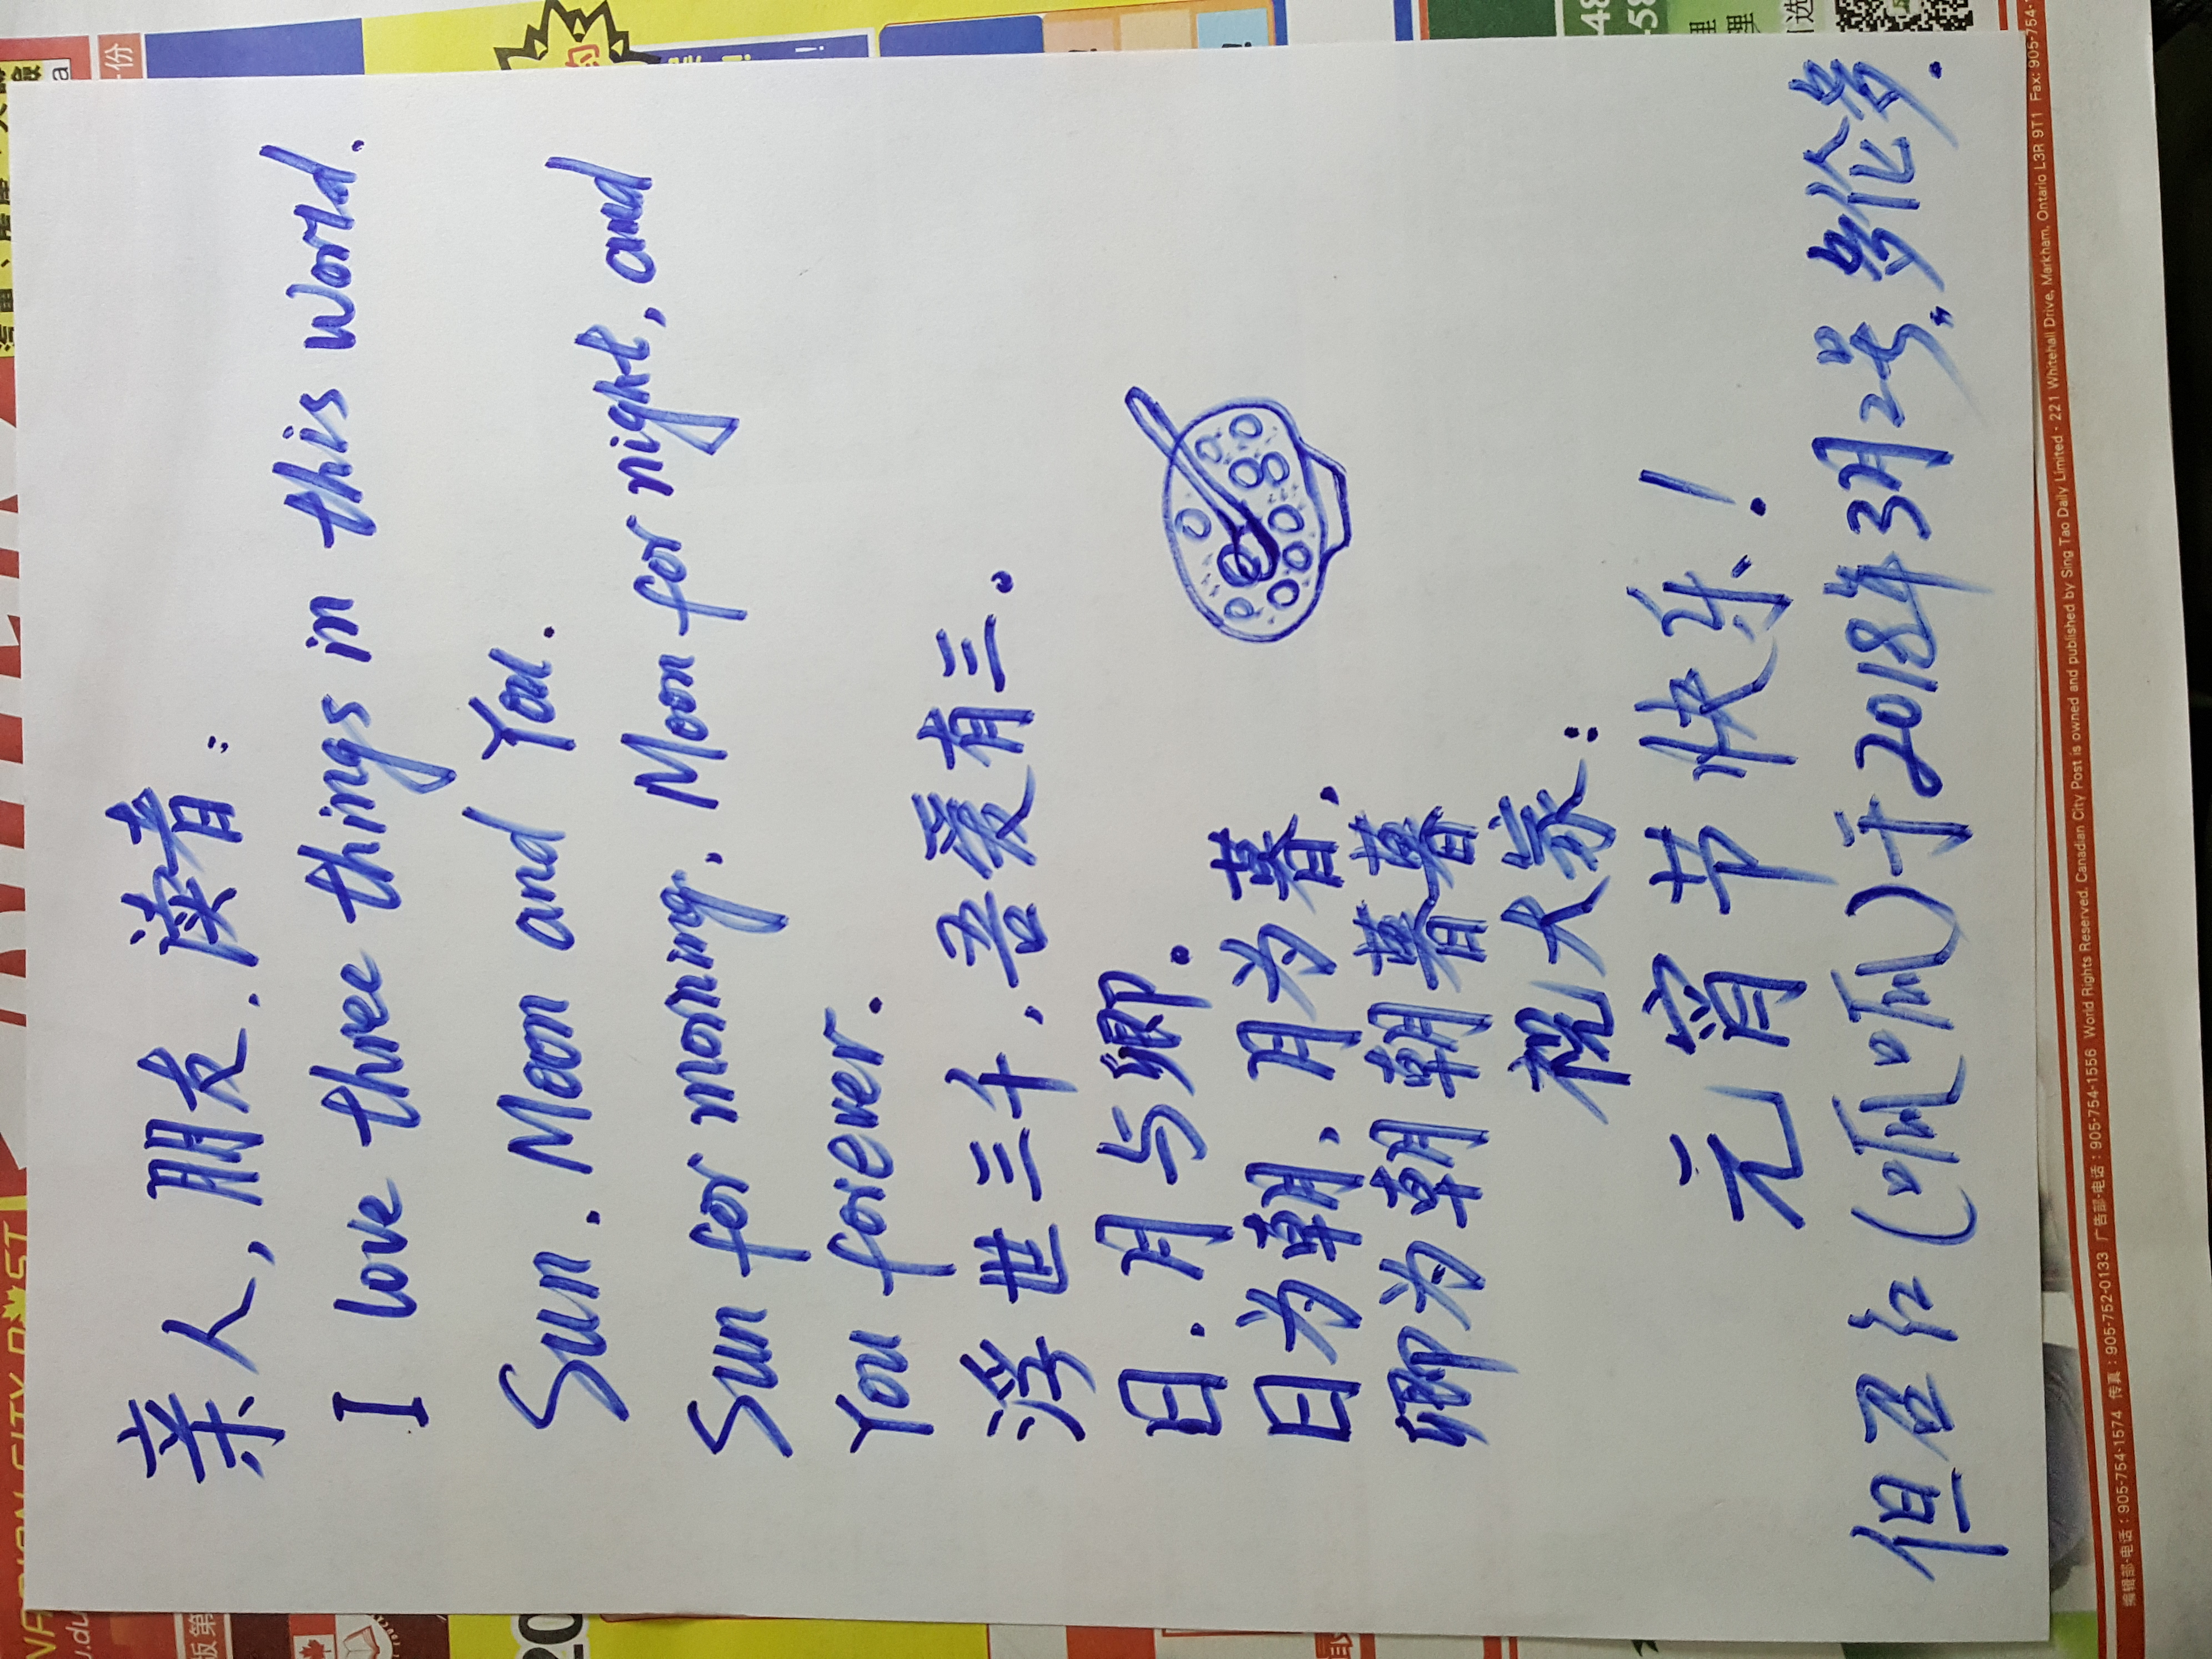 亲人,朋友.读者:
I love three things in this world.
Sun. Moon and You.
Sun for morning. Moon for night, and
You forever.
浮世三千.吾爱有三.
日.月与卿.
日为朝.月为暮.
卿为朝朝暮暮
祝大家:
元宵节快乐!
但至红(呱呱)于2018年3月2号.多伦多.
编辑部-电话:905-754-1574 传真:905-752-0133 广告部-电话:905-754-1556 World Rights Reserved, Canadian City Post is owned and published by Sing Tao Daily Limited · 221 Whitehall Drive, Markham, Ontario L3R 9T1 Fax: 905-754-